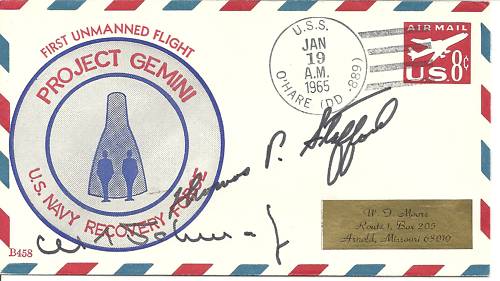 FIRST UNMANNED FLIGHT
PROJECT GEMINI
U.S. NAVY RECOVERY FORCE
B458
U.S.S.
JAN
19
A.M.
1965
O'HARE (DD-889)
AIR MAIL
US 8¢
Thomas P. Stafford
W. D. Moore
Route 1, Box 205
Arnold, Missouri 63010